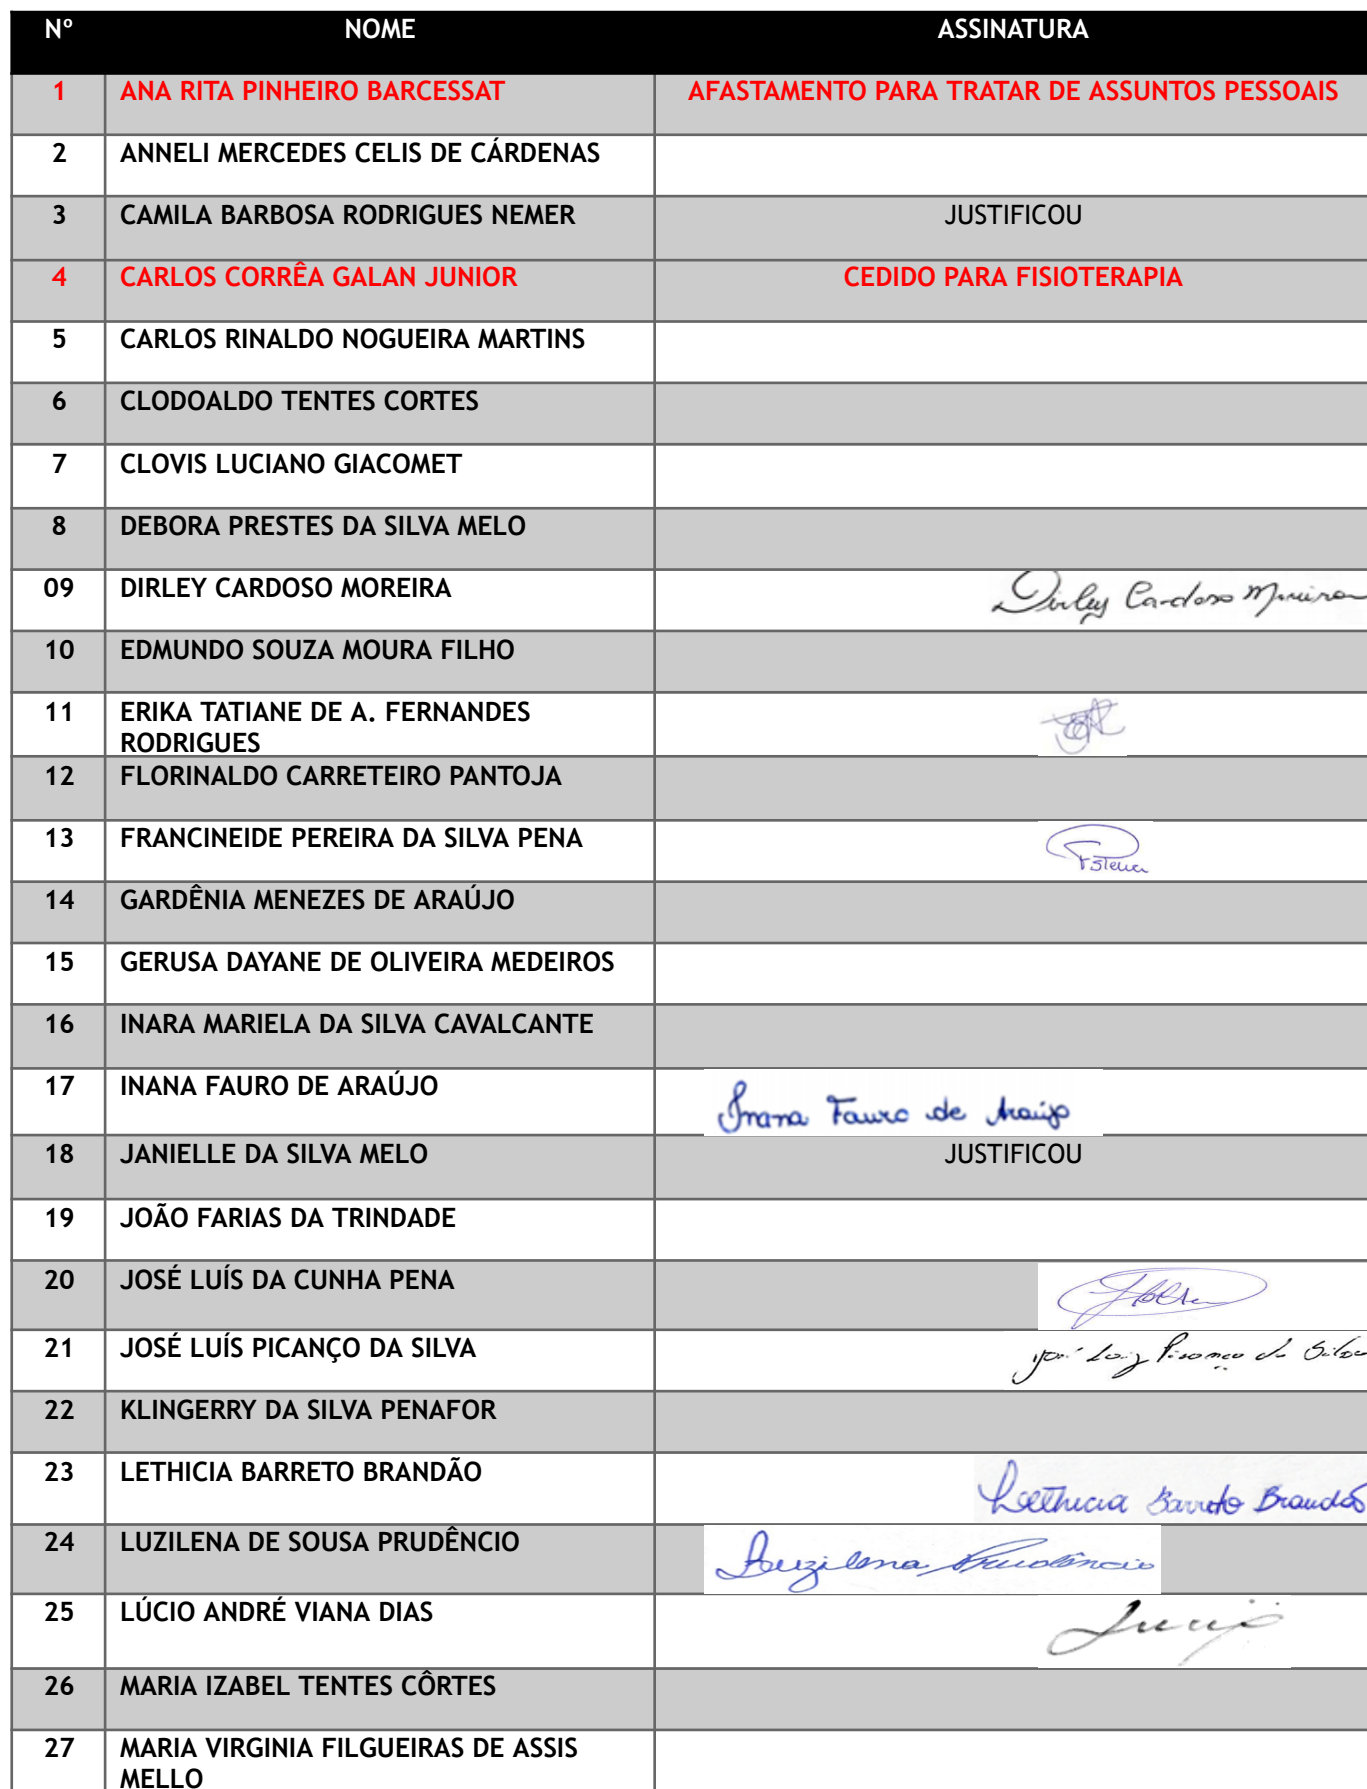 Nº NOME ASSINATURA
1 ANA RITA PINHEIRO BARCESSAT AFASTAMENTO PARA TRATAR DE ASSUNTOS PESSOAIS
2 ANNELI MERCEDES CELIS DE CÁRDENAS
3 CAMILA BARBOSA RODRIGUES NEMER JUSTIFICOU
4 CARLOS CORRÊA GALAN JUNIOR CEDIDO PARA FISIOTERAPIA
5 CARLOS RINALDO NOGUEIRA MARTINS
6 CLODOALDO TENTES CORTES
7 CLOVIS LUCIANO GIACOMET
8 DEBORA PRESTES DA SILVA MELO
09 DIRLEY CARDOSO MOREIRA Dirley Cardoso Moreira
10 EDMUNDO SOUZA MOURA FILHO
11 ERIKA TATIANE DE A. FERNANDES
RODRIGUES
12 FLORINALDO CARRETEIRO PANTOJA
13 FRANCINEIDE PEREIRA DA SILVA PENA
14 GARDÊNIA MENEZES DE ARAÚJO
15 GERUSA DAYANE DE OLIVEIRA MEDEIROS
16 INARA MARIELA DA SILVA CAVALCANTE
17 INANA FAURO DE ARAÚJO Inana Fauro de Araújo
18 JANIELLE DA SILVA MELO JUSTIFICOU
19 JOÃO FARIAS DA TRINDADE
20 JOSÉ LUÍS DA CUNHA PENA
21 JOSÉ LUÍS PICANÇO DA SILVA José Luiz Picanço da Silva
22 KLINGERRY DA SILVA PENAFOR
23 LETHICIA BARRETO BRANDÃO Lethicia Barreto Brandão
24 LUZILENA DE SOUSA PRUDÊNCIO Luzilena Prudêncio
25 LÚCIO ANDRÉ VIANA DIAS
26 MARIA IZABEL TENTES CÔRTES
27 MARIA VIRGINIA FILGUEIRAS DE ASSIS
MELLO